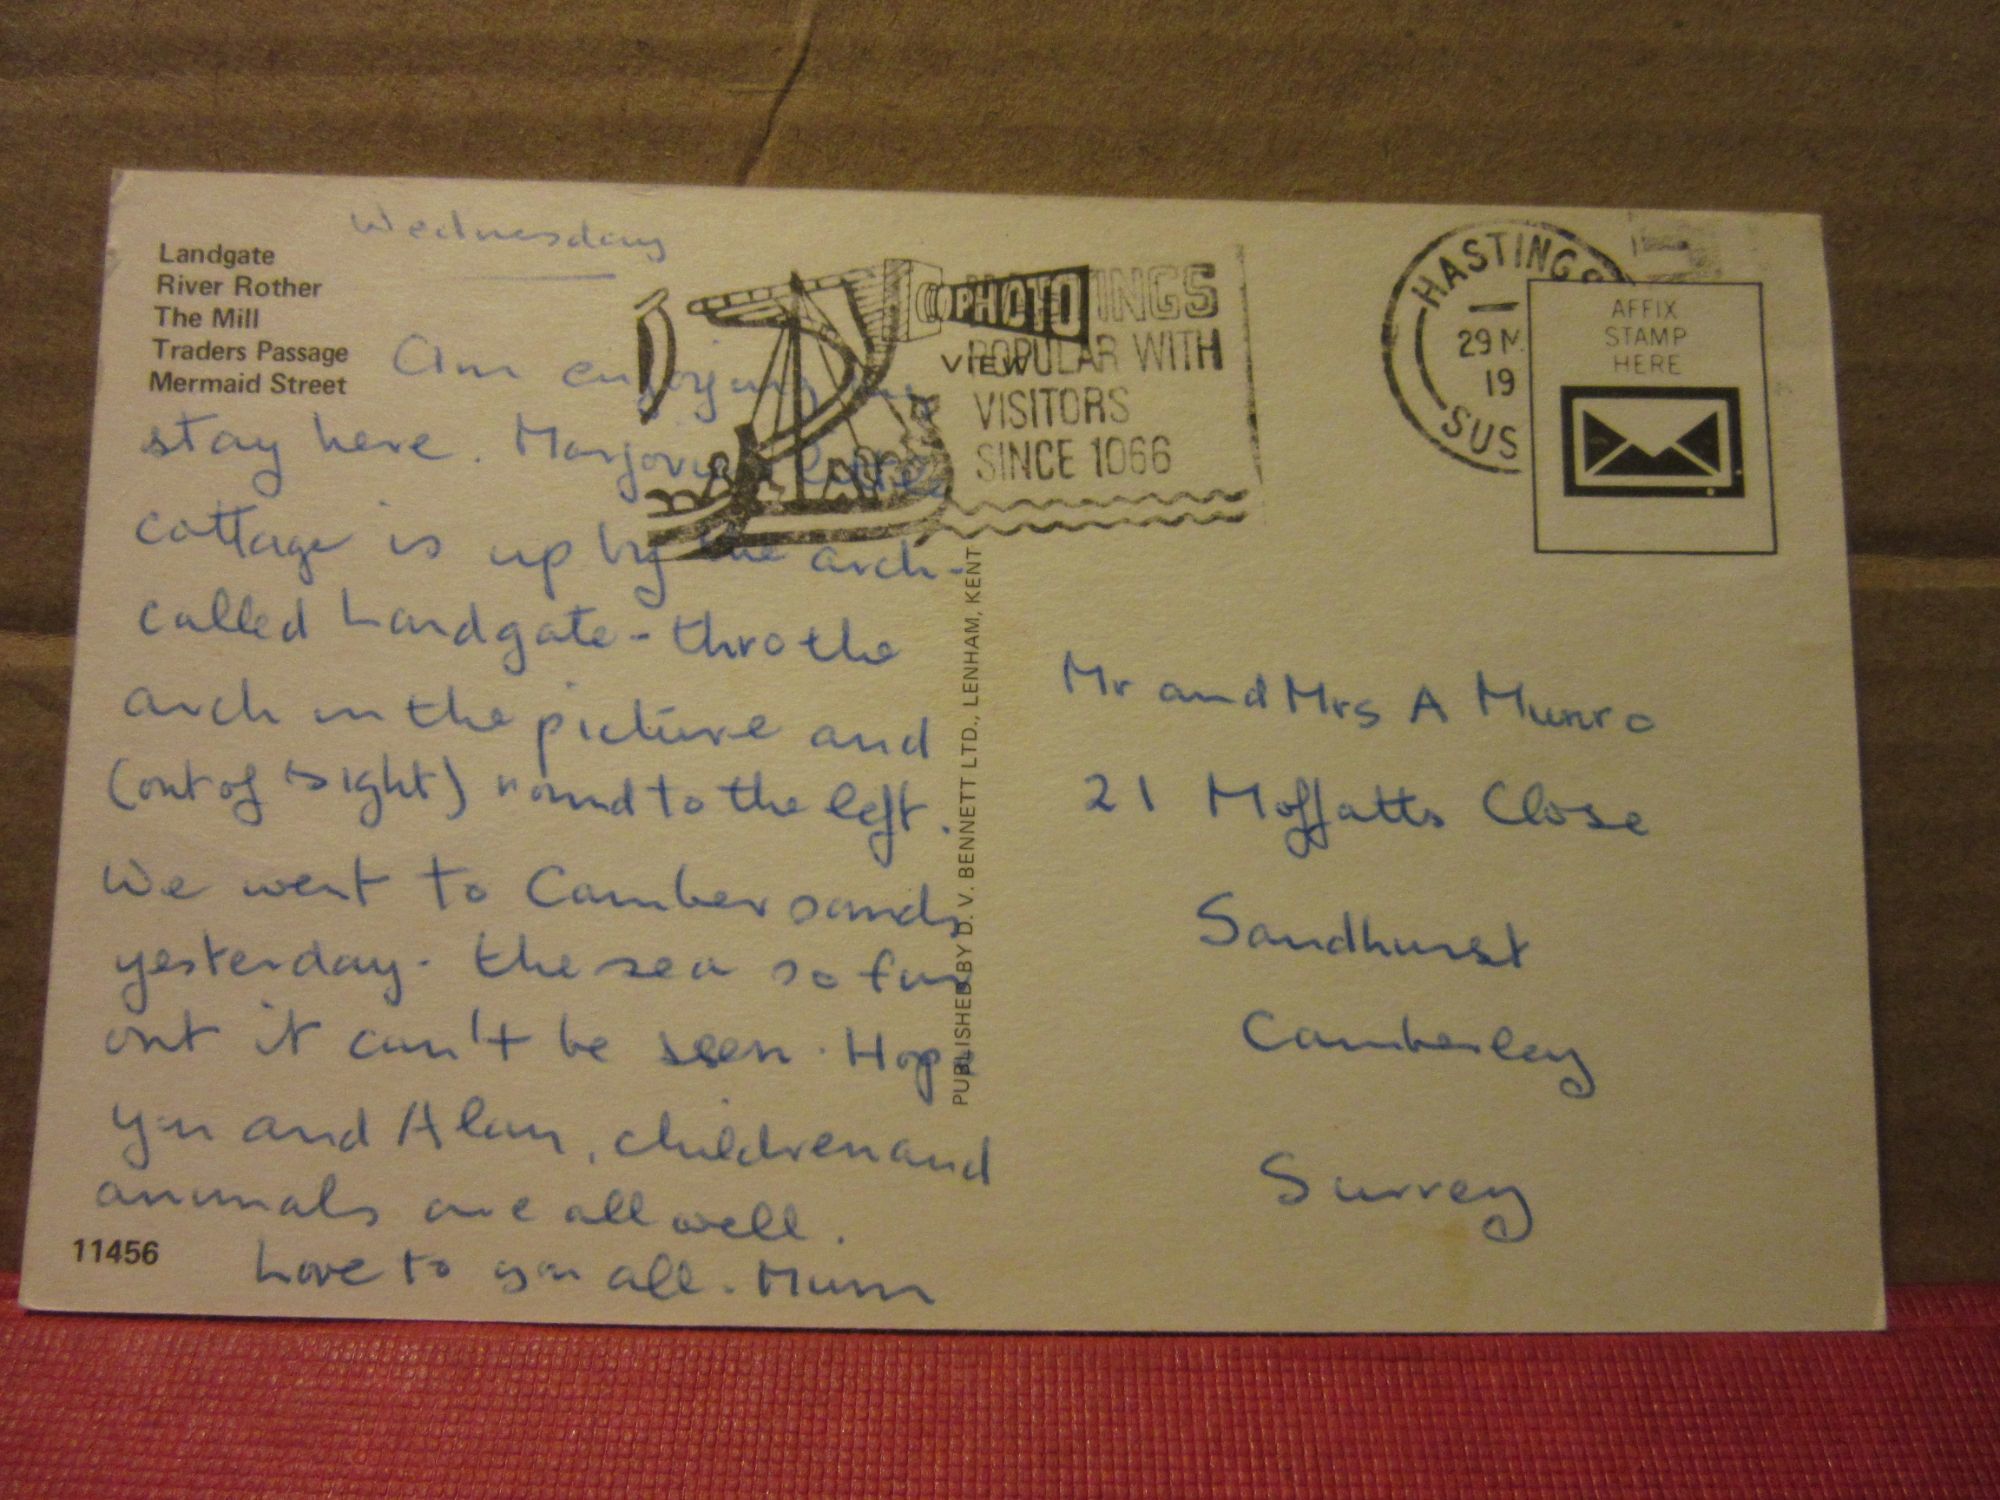 Wednesday
Landgate
River Rother
The Mill
Traders Passage
Mermaid Street
Am enjoying my
stay here. Marjorie's little
cottage is up by the arch -
called Landgate - thro the
arch in the picture and
(out of sight) round to the left.
We went to Camber sands
yesterday - the sea so far
out it can't be seen. Hope
you and Alan, children and
animals are all well.
Love to you all. Mum
11456
PHOTO
VIEW
INGS
POPULAR WITH
VISITORS
SINCE 1066
HASTINGS
29 M
19
SUS
AFFIX
STAMP
HERE
PUBLISHED BY D. V. BENNETT LTD., LENHAM, KENT
Mr and Mrs A Munro
21 Moffatts Close
Sandhurst
Camberley
Surrey